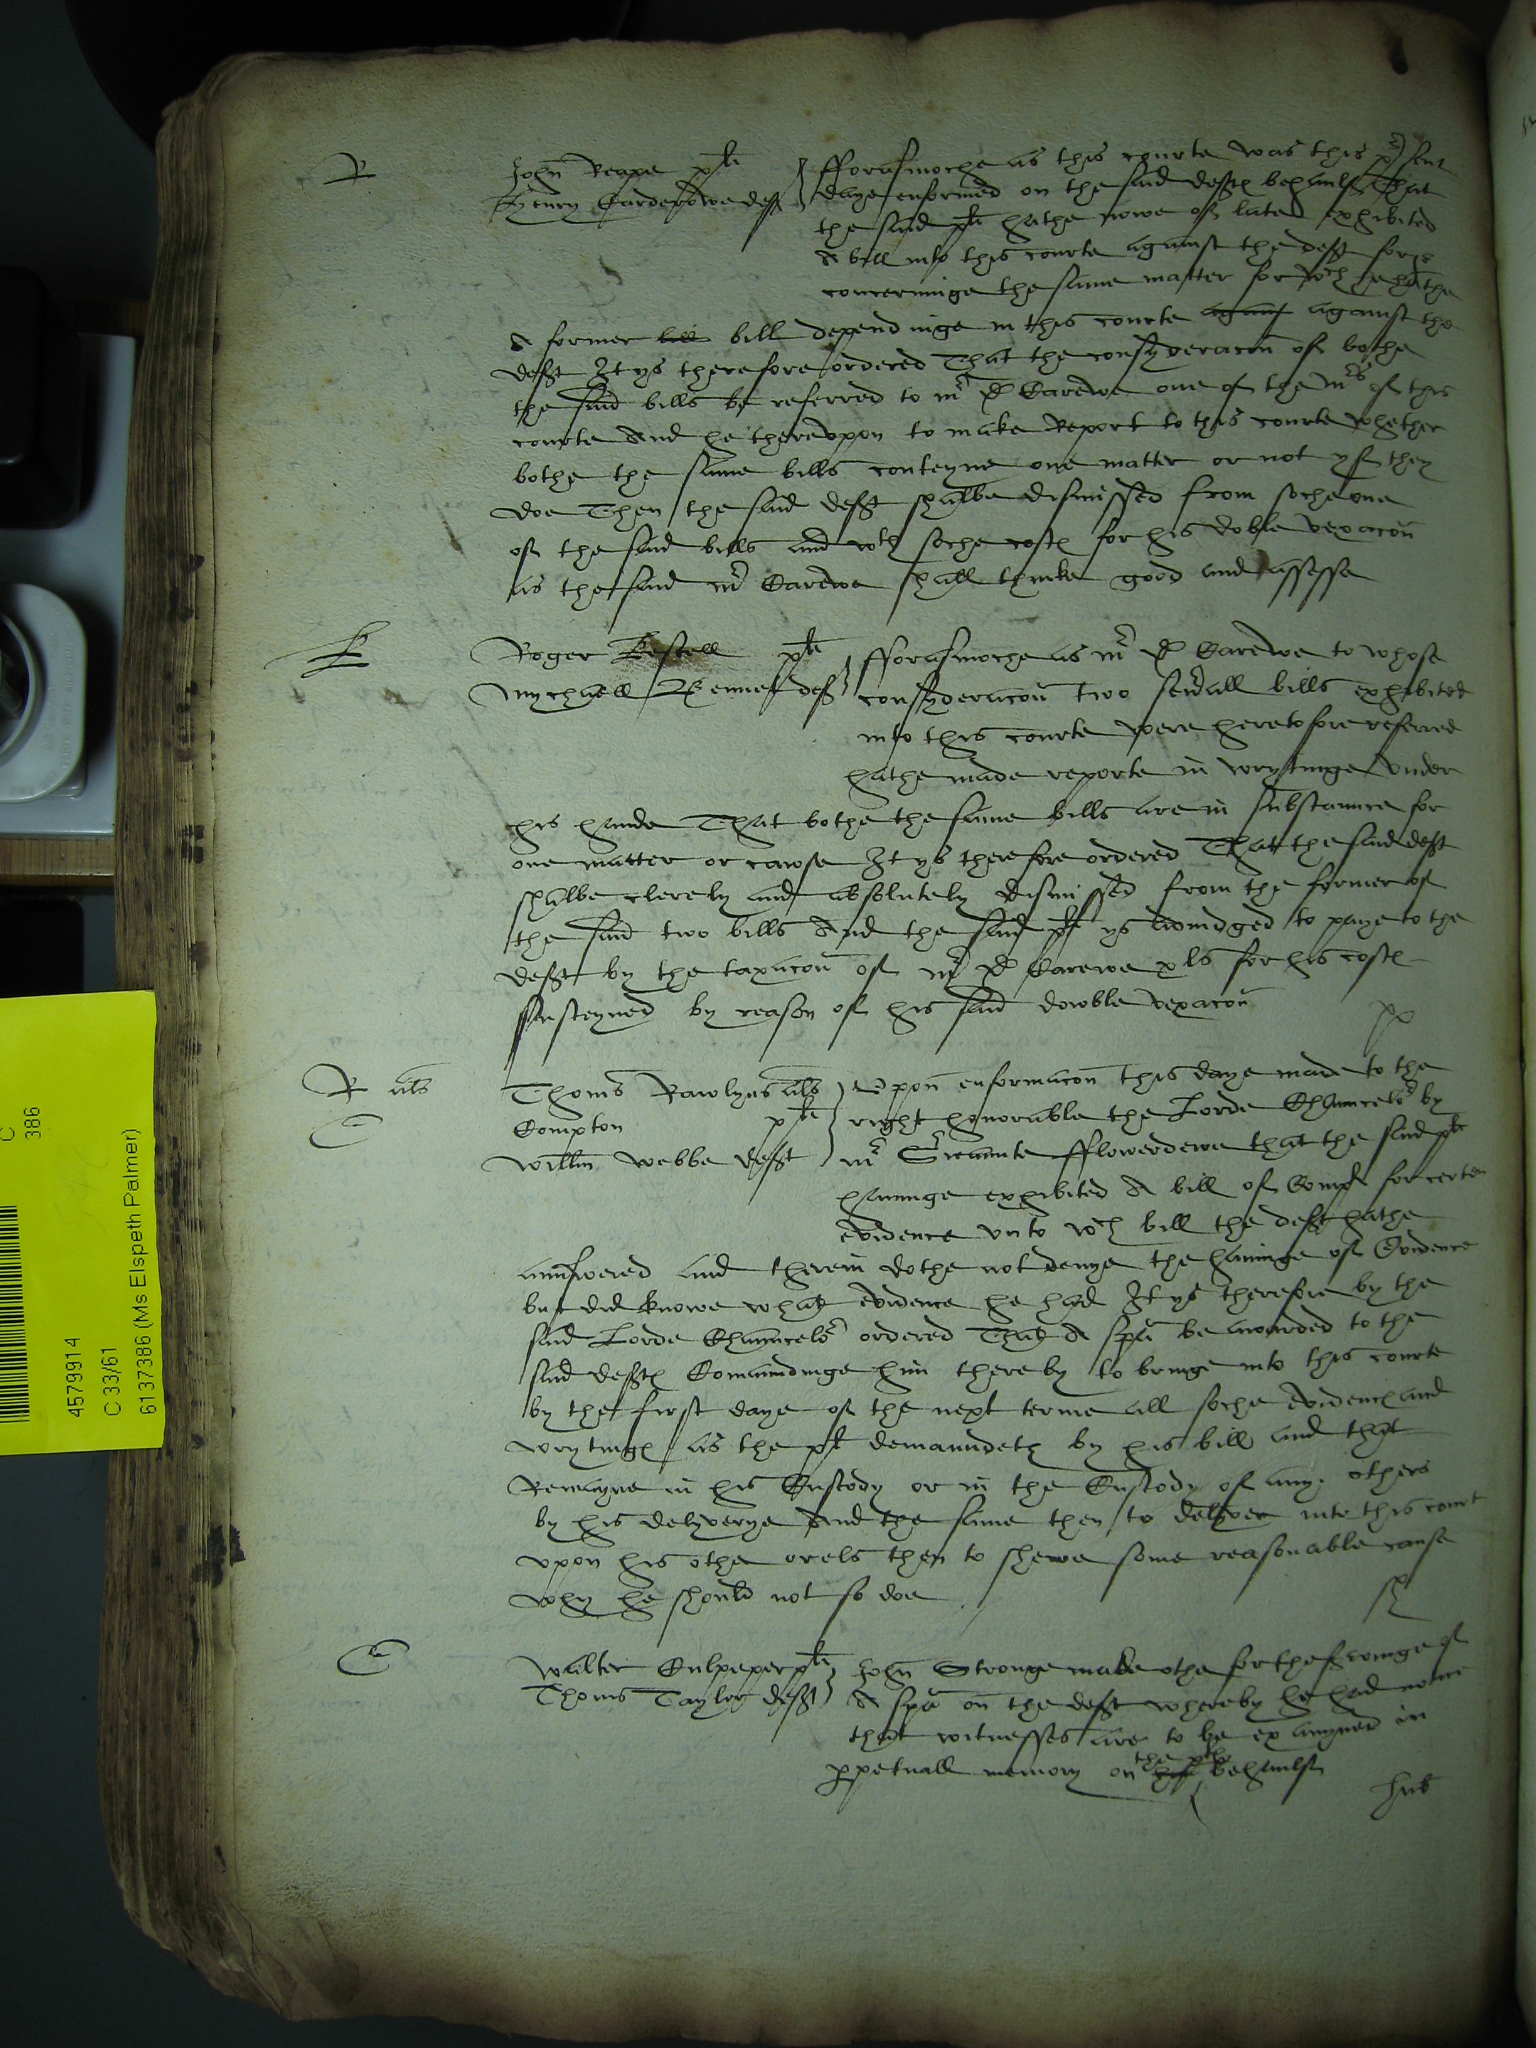 R
John Reape plt
Henry Carderowe deft
fforasmoche as this courte was this psent
daye enformed on the said deftes behaulf That
the said plt hathe nowe of late exhibited
A bill into this courte against the deft
concerninge the same matter for wch he hathe
A former bill dependinge in this courte against the
deft It ys therefore ordered That the consyderacon of bothe
the said bills be referred to mr D Carewe one of the mrs of this
courte And he therevpon to make Report to this courte whether
bothe the same bills conteyne one matter or not yf they
doe Then the said deft shalbe dismissed from soche one
of the said bills and wth soche costes for his doble vexacon
as the said mr Carewe shall thinke good and assesse
Roger plt
Mychaell deft
fforasmoche as mr D Carewe to whose
consyderacon two seuall bills exhibited
into this courte were heretofore referred
hathe made reporte in wrytinge vnder
his hande That bothe the same bills are in substaunce for
one matter or cawse It ys therefore ordered That the said deft
shalbe clerely and absolutely dismissed from the former of
the said two bills And the said plt ys adiudged to paye to the
deft by the taxacon of mr D Carewe xls for his costes
susteyned by reason of his said dowble vexacon
R als
C
Thoms Rawlyns als
Compton plt
Willm Webbe deft
Vpon enformacon this daye made to the
right honorable the Lorde Chauncelor by
mr Sriaunte fflowerdewe that the said plt
hauinge exhibited A bill of Compl for certen
evidence vnto wch bill the deft hathe
aunswered and therein dothe not denye the hauinge of Evidence
but did knowe what evidence he had It ys therefore by the
said Lorde Chauncelor ordered That A spa be awarded to the
said deftes Comaundinge him thereby to bringe into this courte
by the first daye of the next terme all soche evidences and
wrytinges as the plt demaundeth by his bill and that
Remayne in his Custody or in the Custody of any others
by his delyverye And the same then to delyver into this court
vpon his othe or els then to shewe some reasonable cause
why he should not so doe
C
Walter Culpeper plt
Thoms Tayler deft
John Stronge made othe for the seruinge of
A spa on the deft whereby he had notice
that witnesses are to be examyned in
ppetuall memory on the plts behaulf
C
386
4579914
C 33/61
6137386 (Ms Elspeth Palmer)